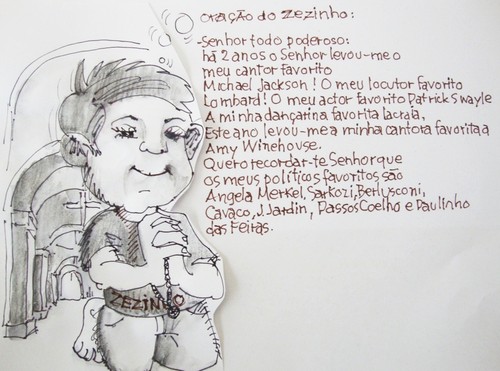 oração do Zezinho:
-Senhor todo poderoso:
há 2 anos o Senhor levou-me o
meu cantor favorito
Michael Jackson! O meu locutor favorito
Lombard! O meu actor favorito Patrick Swayle
A minha dançarina favorita lacraia,
Este ano levou-me a minha cantora favorita a
Amy Winehouse.
Quero recordar-te Senhor que
os meus políticos favoritos são
Angela Merkel, Sarkozi, Berlusconi,
Cavaco, J. Jardin, Passos Coelho e Paulinho
das Feiras.
ZEZIN